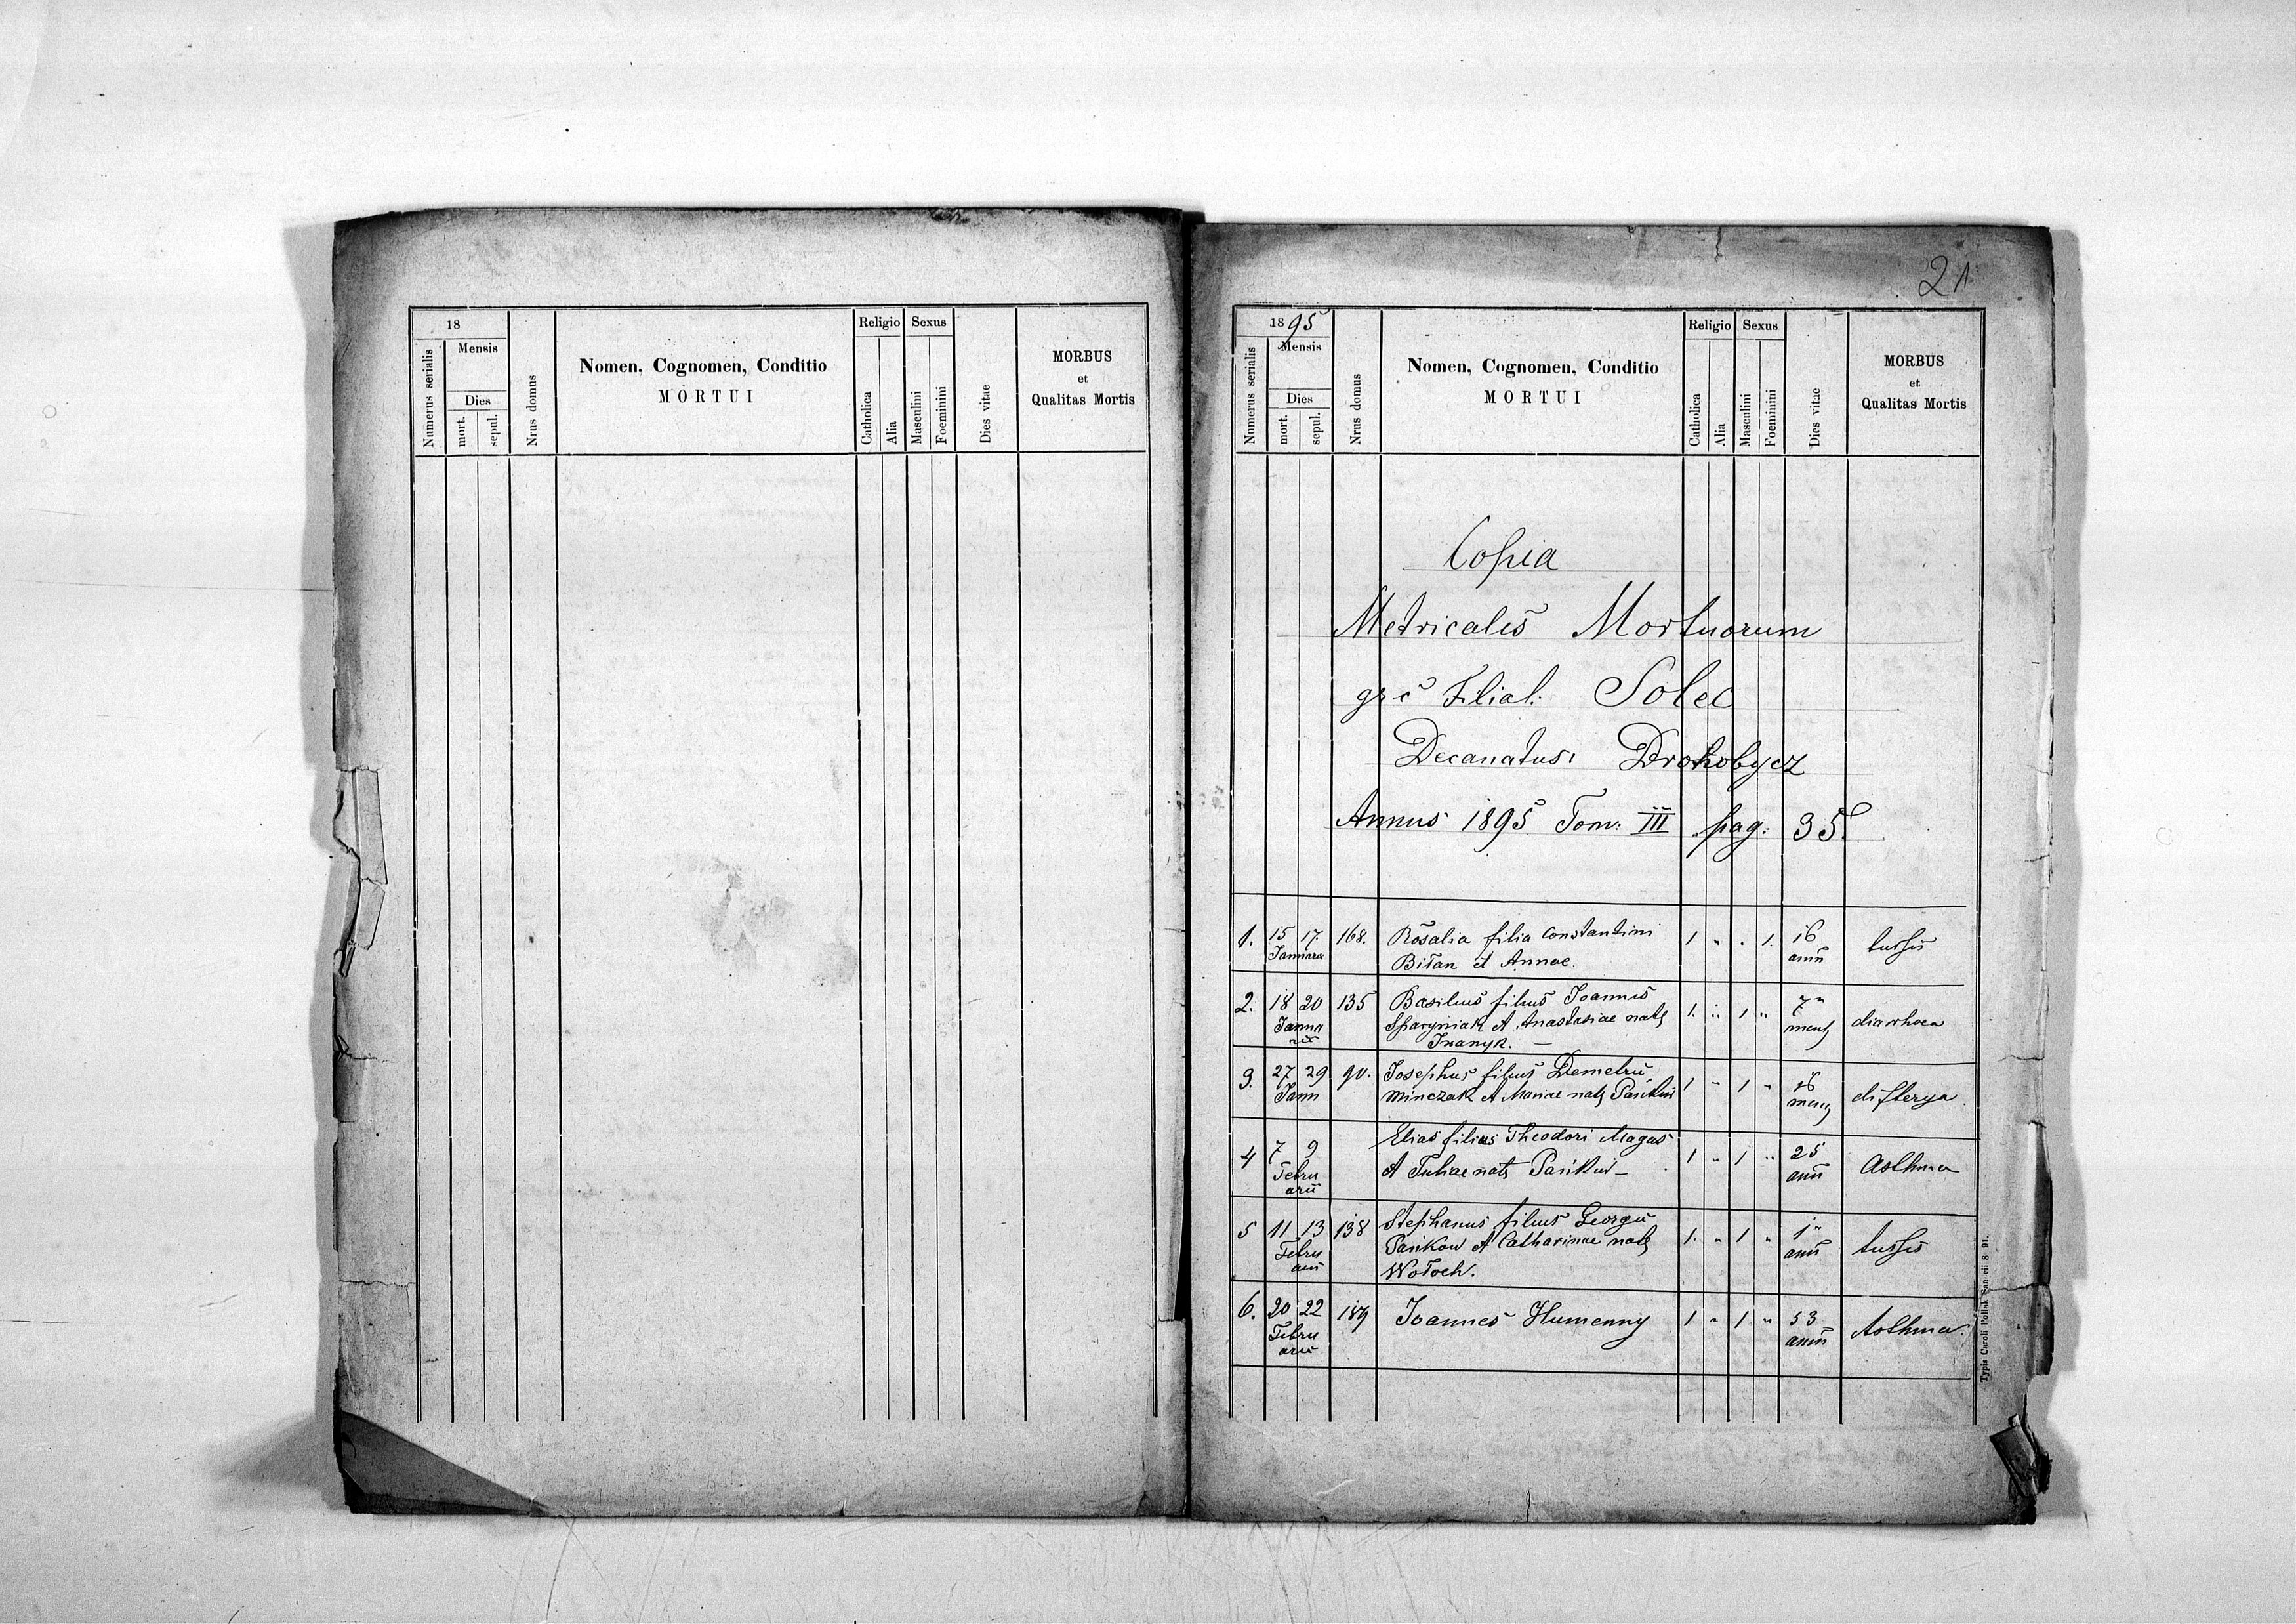 18
Mensis
Dies
Numerus serialis
mort.
sepul.
Nrus domus
Nomen, Cognomen, Conditio
MORTUI
Religio
Catholica
Alia
Sexus
Masculini
Foeminini
Dies vitae
MORBUS
et
Qualitas Mortis
21
1895
Mensis
Dies
Numerus serialis
mort.
sepul.
Nrus domus
Nomen, Cognomen, Conditio
MORTUI
Religio
Catholica
Alia
Sexus
Masculini
Foeminini
Dies vitae
MORBUS
et
Qualitas Mortis
Copia
Metricales Mortuorum
gr c Filial: Solec
Decanatus: Drohobycz
Annus 1895 Tom: III pag: 35.
1. 15 17. 168. Rosalia filia Constantini 1 " . 1. 16 tussis
Bilan et Annae. anni
2. 18 20 135 Basilius filius Joannis 1. " 1 " 7 diarrhoea
et Anastasiae nata mens
Iwanyk. —
3. 27 29 90. Josephus filius Demetrii 1 " 1 " 16 difterya
Jann Minczak et Mariae nata mens
4 7 9 Elias filius Theodori Magas 1 " 1 " 25 Asthma
Febru et Juliae nata anni
arii
5 11 13 138 Stephanus filius Georgii 1. " 1 " 1 tussis
Febru et Catharinae nata anni
arii Wołoch.
6. 20 22 189 Joannes Humenny 1 " 1 " 53 Asthma.
Febru anni
arii
Typis Caroli Pollak Sanocii 8 91.